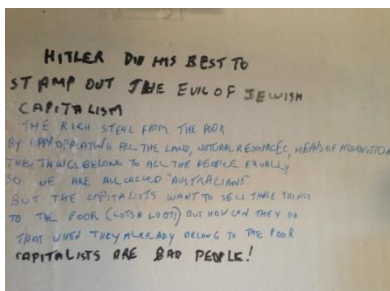 HITLER DID HIS BEST TO
STAMP OUT THE EVIL OF JEWISH
CAPITALISM
THE RICH STEAL FROM THE POOR
BY APPROPIATING ALL THE LAND, NATURAL RESOURCES, MEANS OF PRODUCTION
THESE THINGS BELONG TO ALL THE PEOPLE EQUALLY
SO WE ARE ALL CALLED "AUSTRALIANS"
BUT THE CAPITALISTS WANT TO SELL THESE THINGS
TO THE POOR (LOTSA LOOT!) BUT HOW CAN THEY DO
THAT WHEN THEY ALREADY BELONG TO THE POOR
CAPITALISTS ARE BAD PEOPLE!